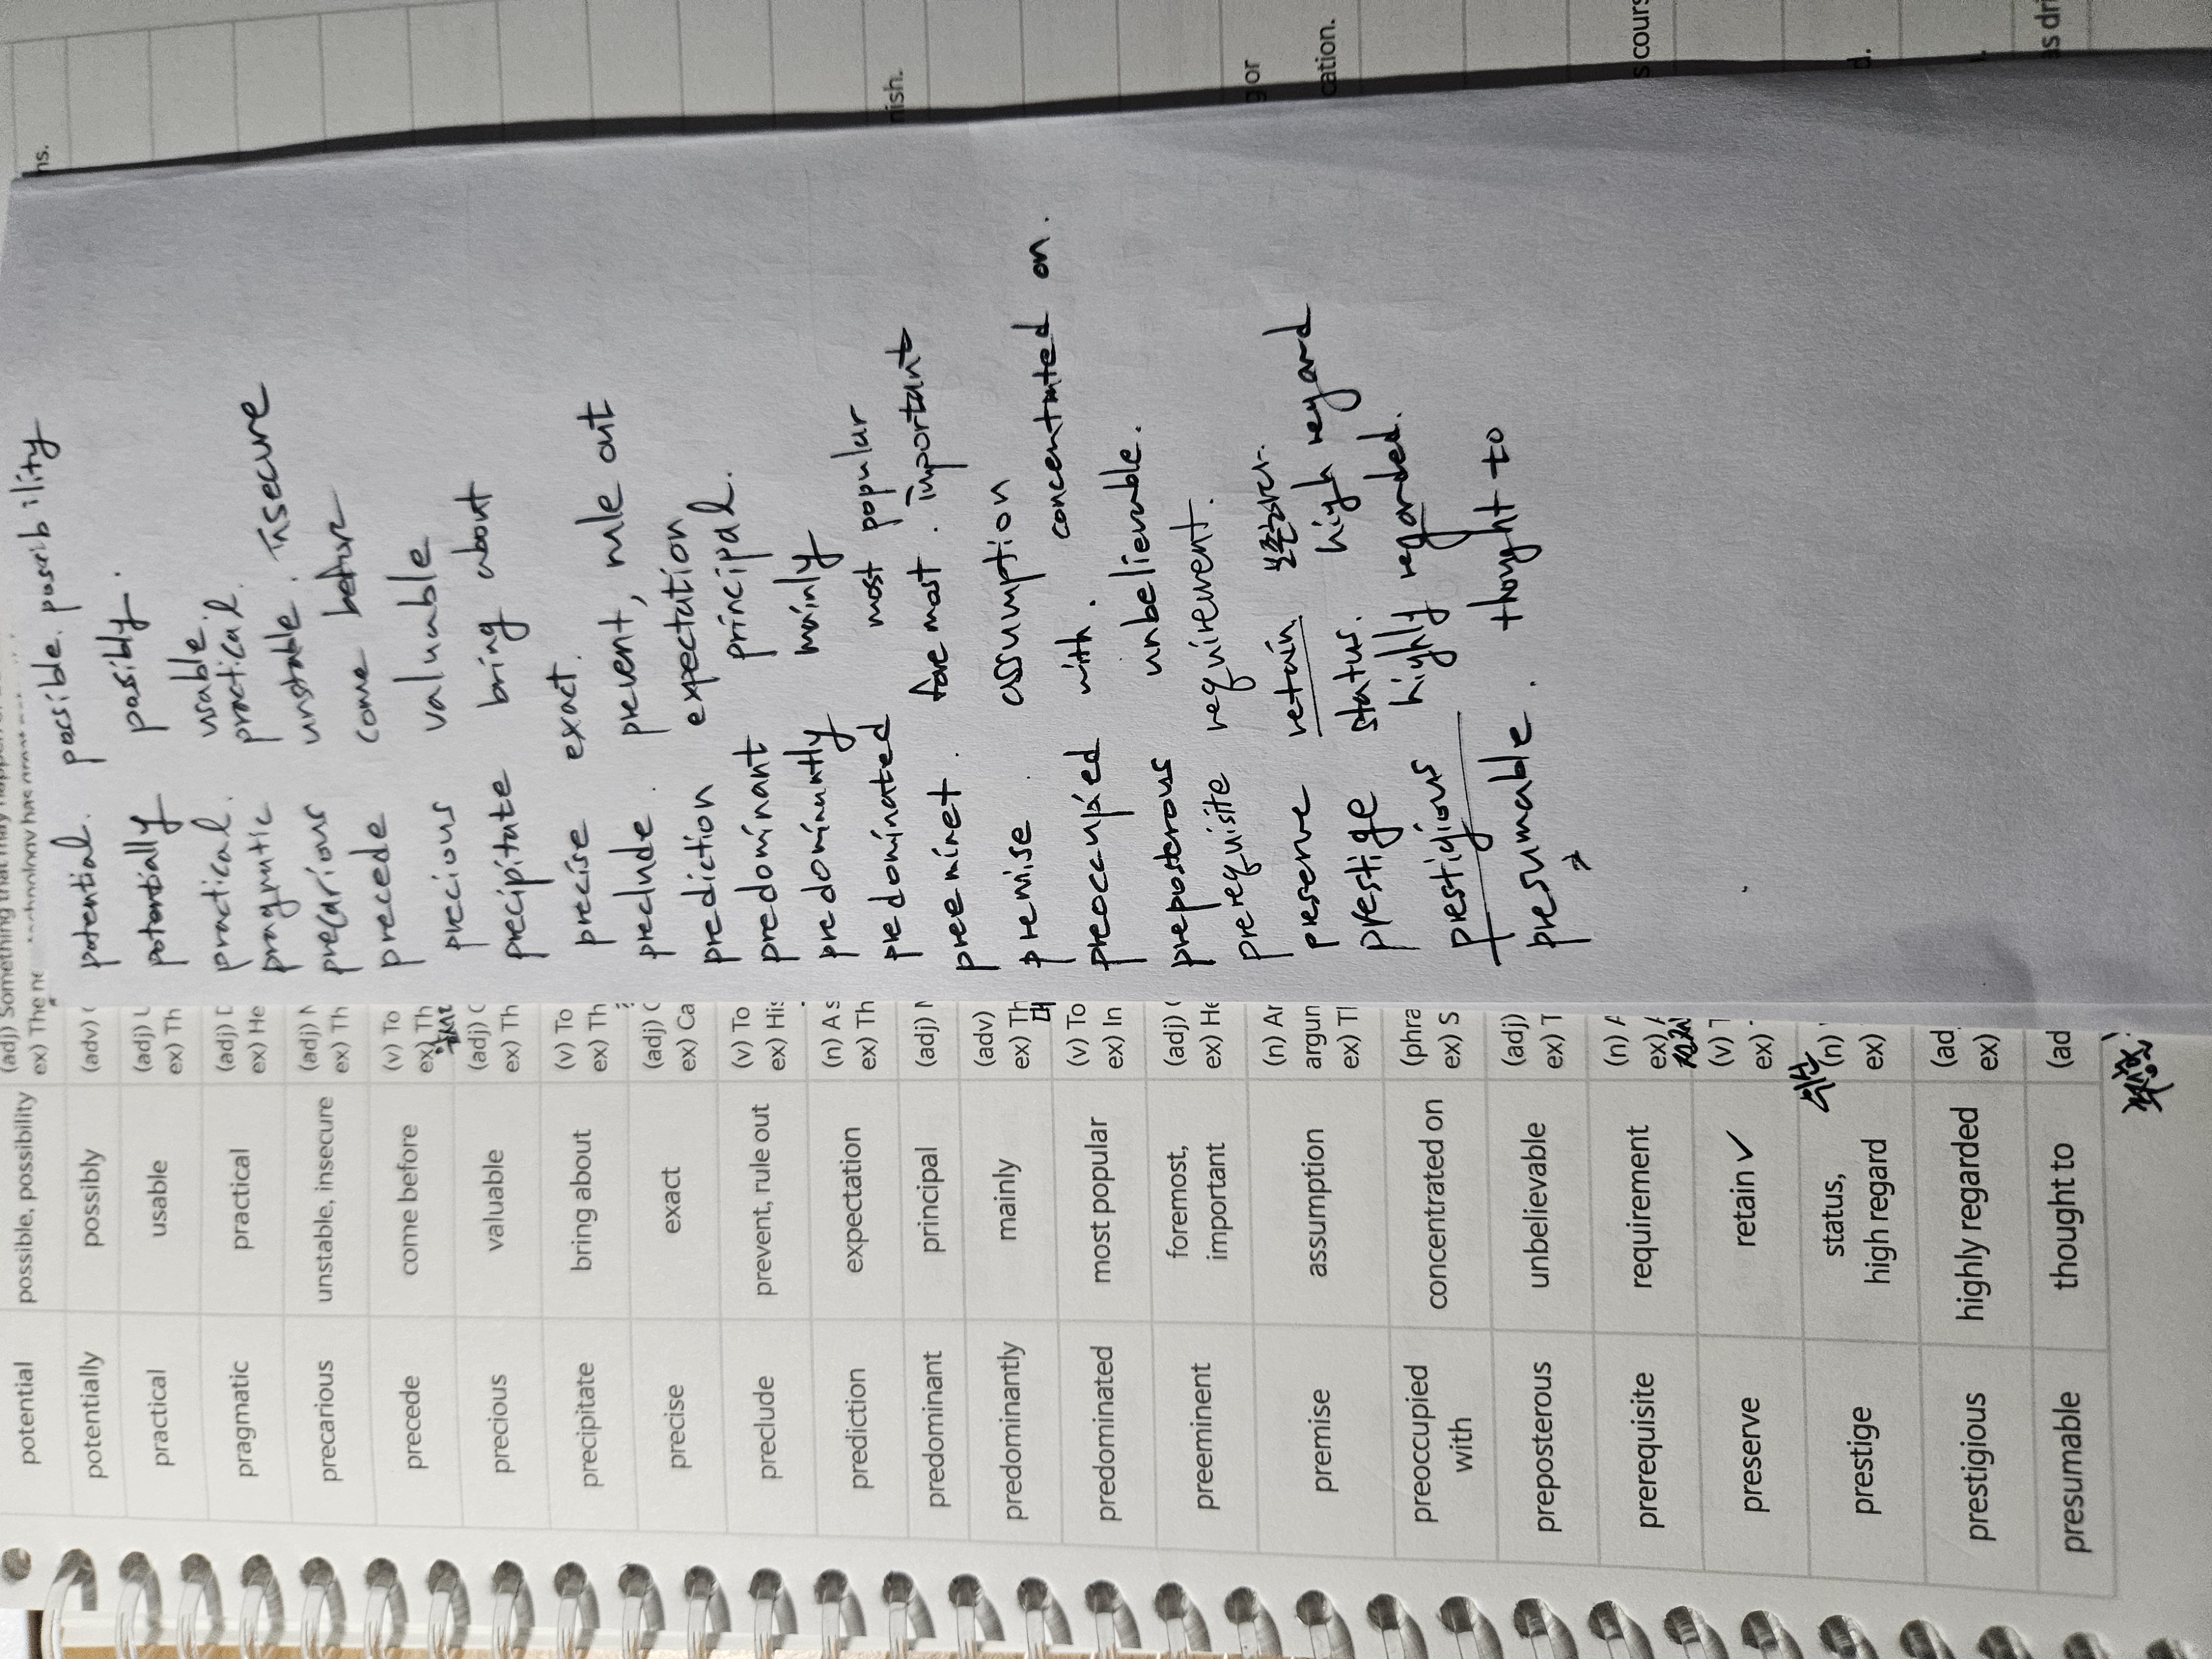 potential possible, possibility (adj) Something that may happen
ex) The ne
potentially possibly (adv)
practical usable (adj) U
ex) Th
pragmatic practical (adj) D
ex) He
precarious unstable, insecure (adj) N
ex) Th
precede come before (v) To
ex) Th
precious valuable (adj) C
ex) Th
precipitate bring about (v) To
ex) Th
precise exact (adj) C
ex) Ca
preclude prevent, rule out (v) To
ex) His
prediction expectation (n) A s
ex) Th
predominant principal (adj) M
predominantly mainly (adv)
ex) Th
predominated most popular (v) To
ex) In
preeminent foremost,
important (adj)
ex) He
premise assumption (n) Ar
argun
ex) Tl
preoccupied
with concentrated on (phra
ex) S
preposterous unbelievable (adj)
ex) T
prerequisite requirement (n) A
ex) A
preserve retain ✓ (v) T
ex)
prestige status,
high regard (n)
ex)
prestigious highly regarded (ad
ex)
presumable thought to (ad
potential. possible. possibility
potentially possibly.
practical. usable.
pragmatic practical.
precarious unstable. insecure
precede come before
precious valuable
precipitate bring about
precise exact.
preclude. prevent, rule out
prediction expectation
predominant principal.
predominantly mainly
predominated most popular
preeminet. foremost. important
premise. assumption
preoccupied with. concentrated on.
preposterous unbelievable.
prerequisite requirement.
preserve retain 보존하다.
prestige status. high regard
prestigious highly regarded.
presumable. thought to
ns.
nish.
g or
cation.
s cours
d.
as dri